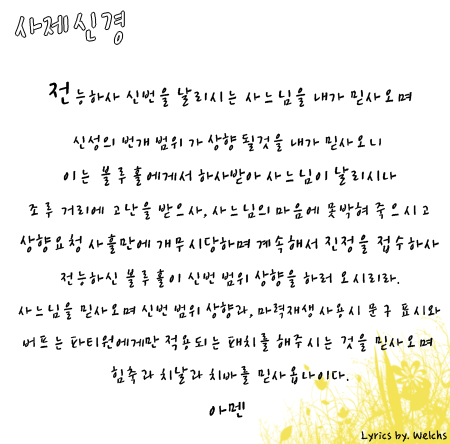 사제신경
전능하사 신번을 날리시는 사느님을 내가 믿사오며
신성의 번개 범위가 상향될것을 내가 믿사오니
이는 블루홀에게서 하사받아 사느님이 날리시나
조루 거리에 고난을 받으사, 사느님의 마음에 못박혀 죽으시고
상향요청 사흘만에 개무시당하며 계속해서 진정을 접수하사
전능하신 블루홀이 신번 범위 상향을 하러 오시리라.
사느님을 믿사오며 신번 범위 상향과, 마력재생 사용시 문구 표시와
버프는 파티원에게만 적용되는 패치를 해주시는 것을 믿사오며
힘축과 치날과 치바를 믿사옵나이다.
아멘
Lyrics by. Welchs